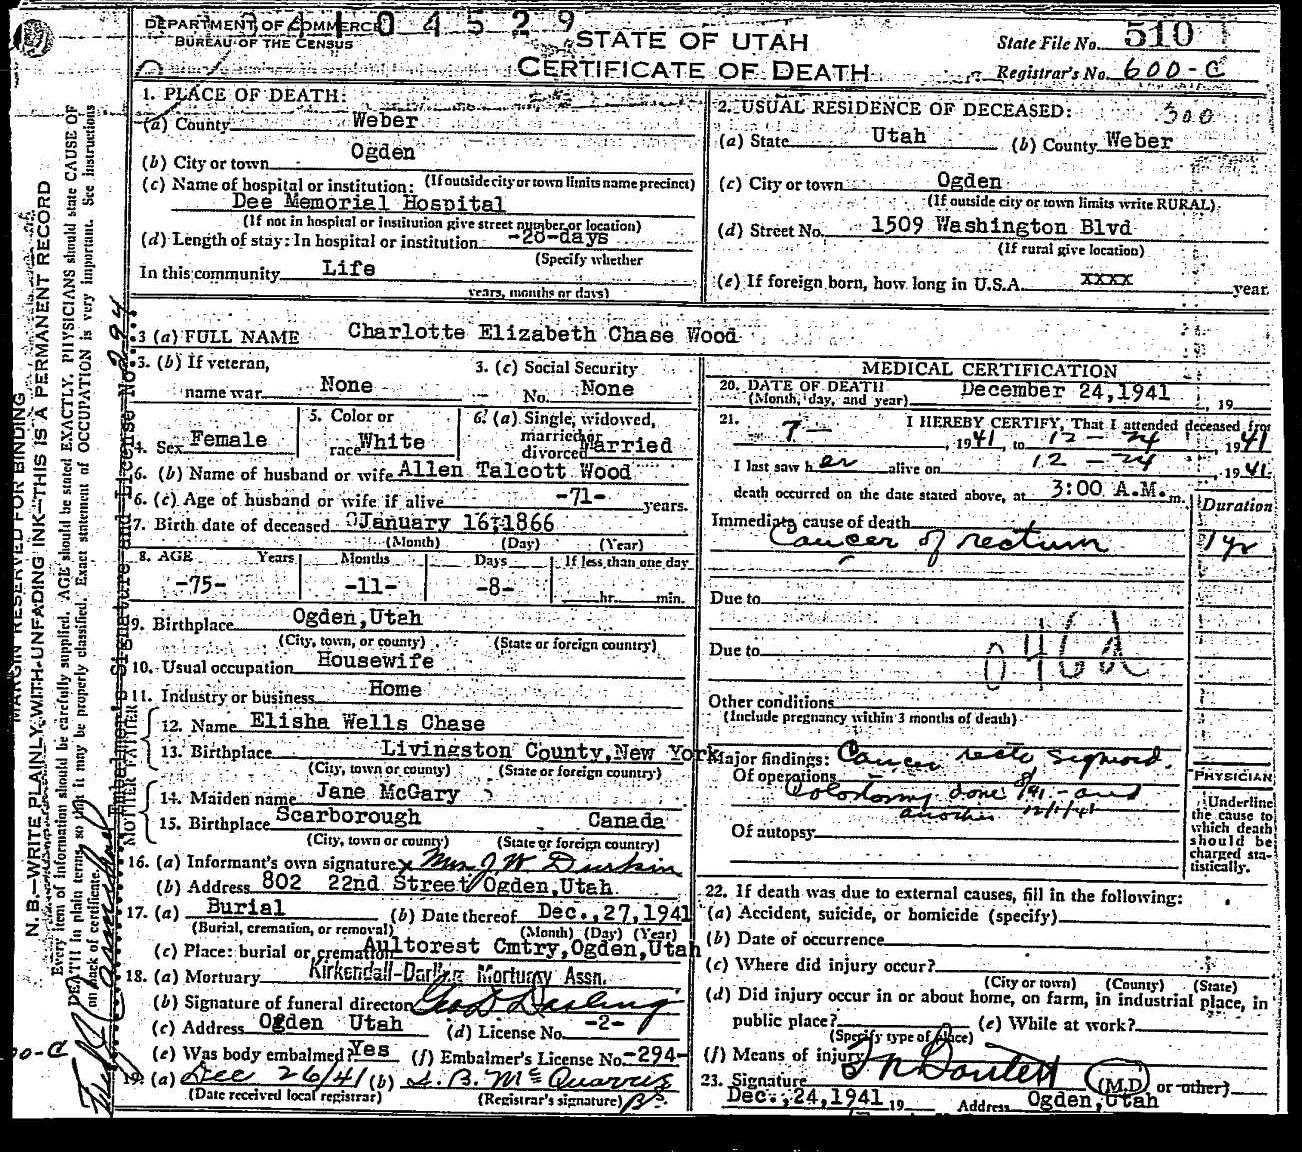 DEPARTMENT OF COMMERCE
BUREAU OF THE CENSUS
04529
STATE OF UTAH
CERTIFICATE OF DEATH
State File No. 510
Registrar's No. 600-C
1. PLACE OF DEATH:
(a) County Weber
(b) City or town Ogden
(If outside city or town limits name precinct)
(c) Name of hospital or institution:
Dee Memorial Hospital
(If not in hospital or institution give street number or location)
(d) Length of stay: In hospital or institution -28-days
(Specify whether
In this community Life
years, months or days)
2. USUAL RESIDENCE OF DECEASED: 300
(a) State Utah (b) County Weber
(c) City or town Ogden
(If outside city or town limits write RURAL)
(d) Street No. 1509 Washington Blvd
(If rural give location)
(e) If foreign born, how long in U.S.A. xxxx year
3 (a) FULL NAME Charlotte Elizabeth Chase Wood
3. (b) If veteran, name war None
3. (c) Social Security No. None
4. Sex Female
5. Color or race White
6. (a) Single, widowed, married or divorced Married
6. (b) Name of husband or wife Allen Talcott Wood
6. (c) Age of husband or wife if alive -71- years.
7. Birth date of deceased January 16, 1866
(Month) (Day) (Year)
8. AGE Years Months Days If less than one day
-75- -11- -8- hr. min.
9. Birthplace Ogden,Utah
(City, town, or county) (State or foreign country)
10. Usual occupation Housewife
11. Industry or business Home
FATHER
12. Name Elisha Wells Chase
13. Birthplace Livingston County,New York
(City, town or county) (State or foreign country)
MOTHER
14. Maiden name Jane McGary
15. Birthplace Scarborough Canada
(City, town, or county) (State or foreign country)
16. (a) Informant's own signature x Mrs J W Durkin
(b) Address 802 22nd Street Ogden,Utah
17. (a) Burial (b) Date thereof Dec.,27,1941
(Burial, cremation, or removal) (Month) (Day) (Year)
(c) Place: burial or cremation Aultorest Cmtry,Ogden,Utah
18. (a) Mortuary Kirkendall-Darling Mortuary Assn.
(b) Signature of funeral director Geo D Darling
(c) Address Ogden Utah (d) License No. -2-
(e) Was body embalmed? Yes (f) Embalmer's License No. -294-
19. (a) Dec 26/41 (b)
(Date received local registrar) (Registrar's signature)
MEDICAL CERTIFICATION
20. DATE OF DEATH December 24,1941, 19
(Month, day, and year)
21. I HEREBY CERTIFY, That I attended deceased from
7- , 1941, to 12-24, 1941
I last saw her alive on 12-24, 1941.
death occurred on the date stated above, at 3:00 A.M. m.
Duration
Immediate cause of death
Cancer of rectum 1 yr
Due to
Due to
046d
Other conditions
(Include pregnancy within 3 months of death)
Major findings: Cancer recto sigmoid.
Of operations
Colostomy done 8/41 - and
another 12/1/41
Of autopsy
PHYSICIAN
Underline
the cause to
which death
should be
charged sta-
tistically.
22. If death was due to external causes, fill in the following:
(a) Accident, suicide, or homicide (specify)
(b) Date of occurrence
(c) Where did injury occur?
(City or town) (County) (State)
(d) Did injury occur in or about home, on farm, in industrial place, in
public place? (e) While at work?
(Specify type of place)
(f) Means of injury
23. Signature (M.D. or other)
Dec.,24,1941 19 Address Ogden,Utah
MARGIN RESERVED FOR BINDING
N. B.—WRITE PLAINLY, WITH UNFADING INK—THIS IS A PERMANENT RECORD
Every item of information should be carefully supplied. AGE should be stated EXACTLY. PHYSICIANS should state CAUSE OF
DEATH in plain terms, so that it may be properly classified. Exact statement of OCCUPATION is very important. See instructions
on back of certificate.
Embalmer's Signature and License No. 294